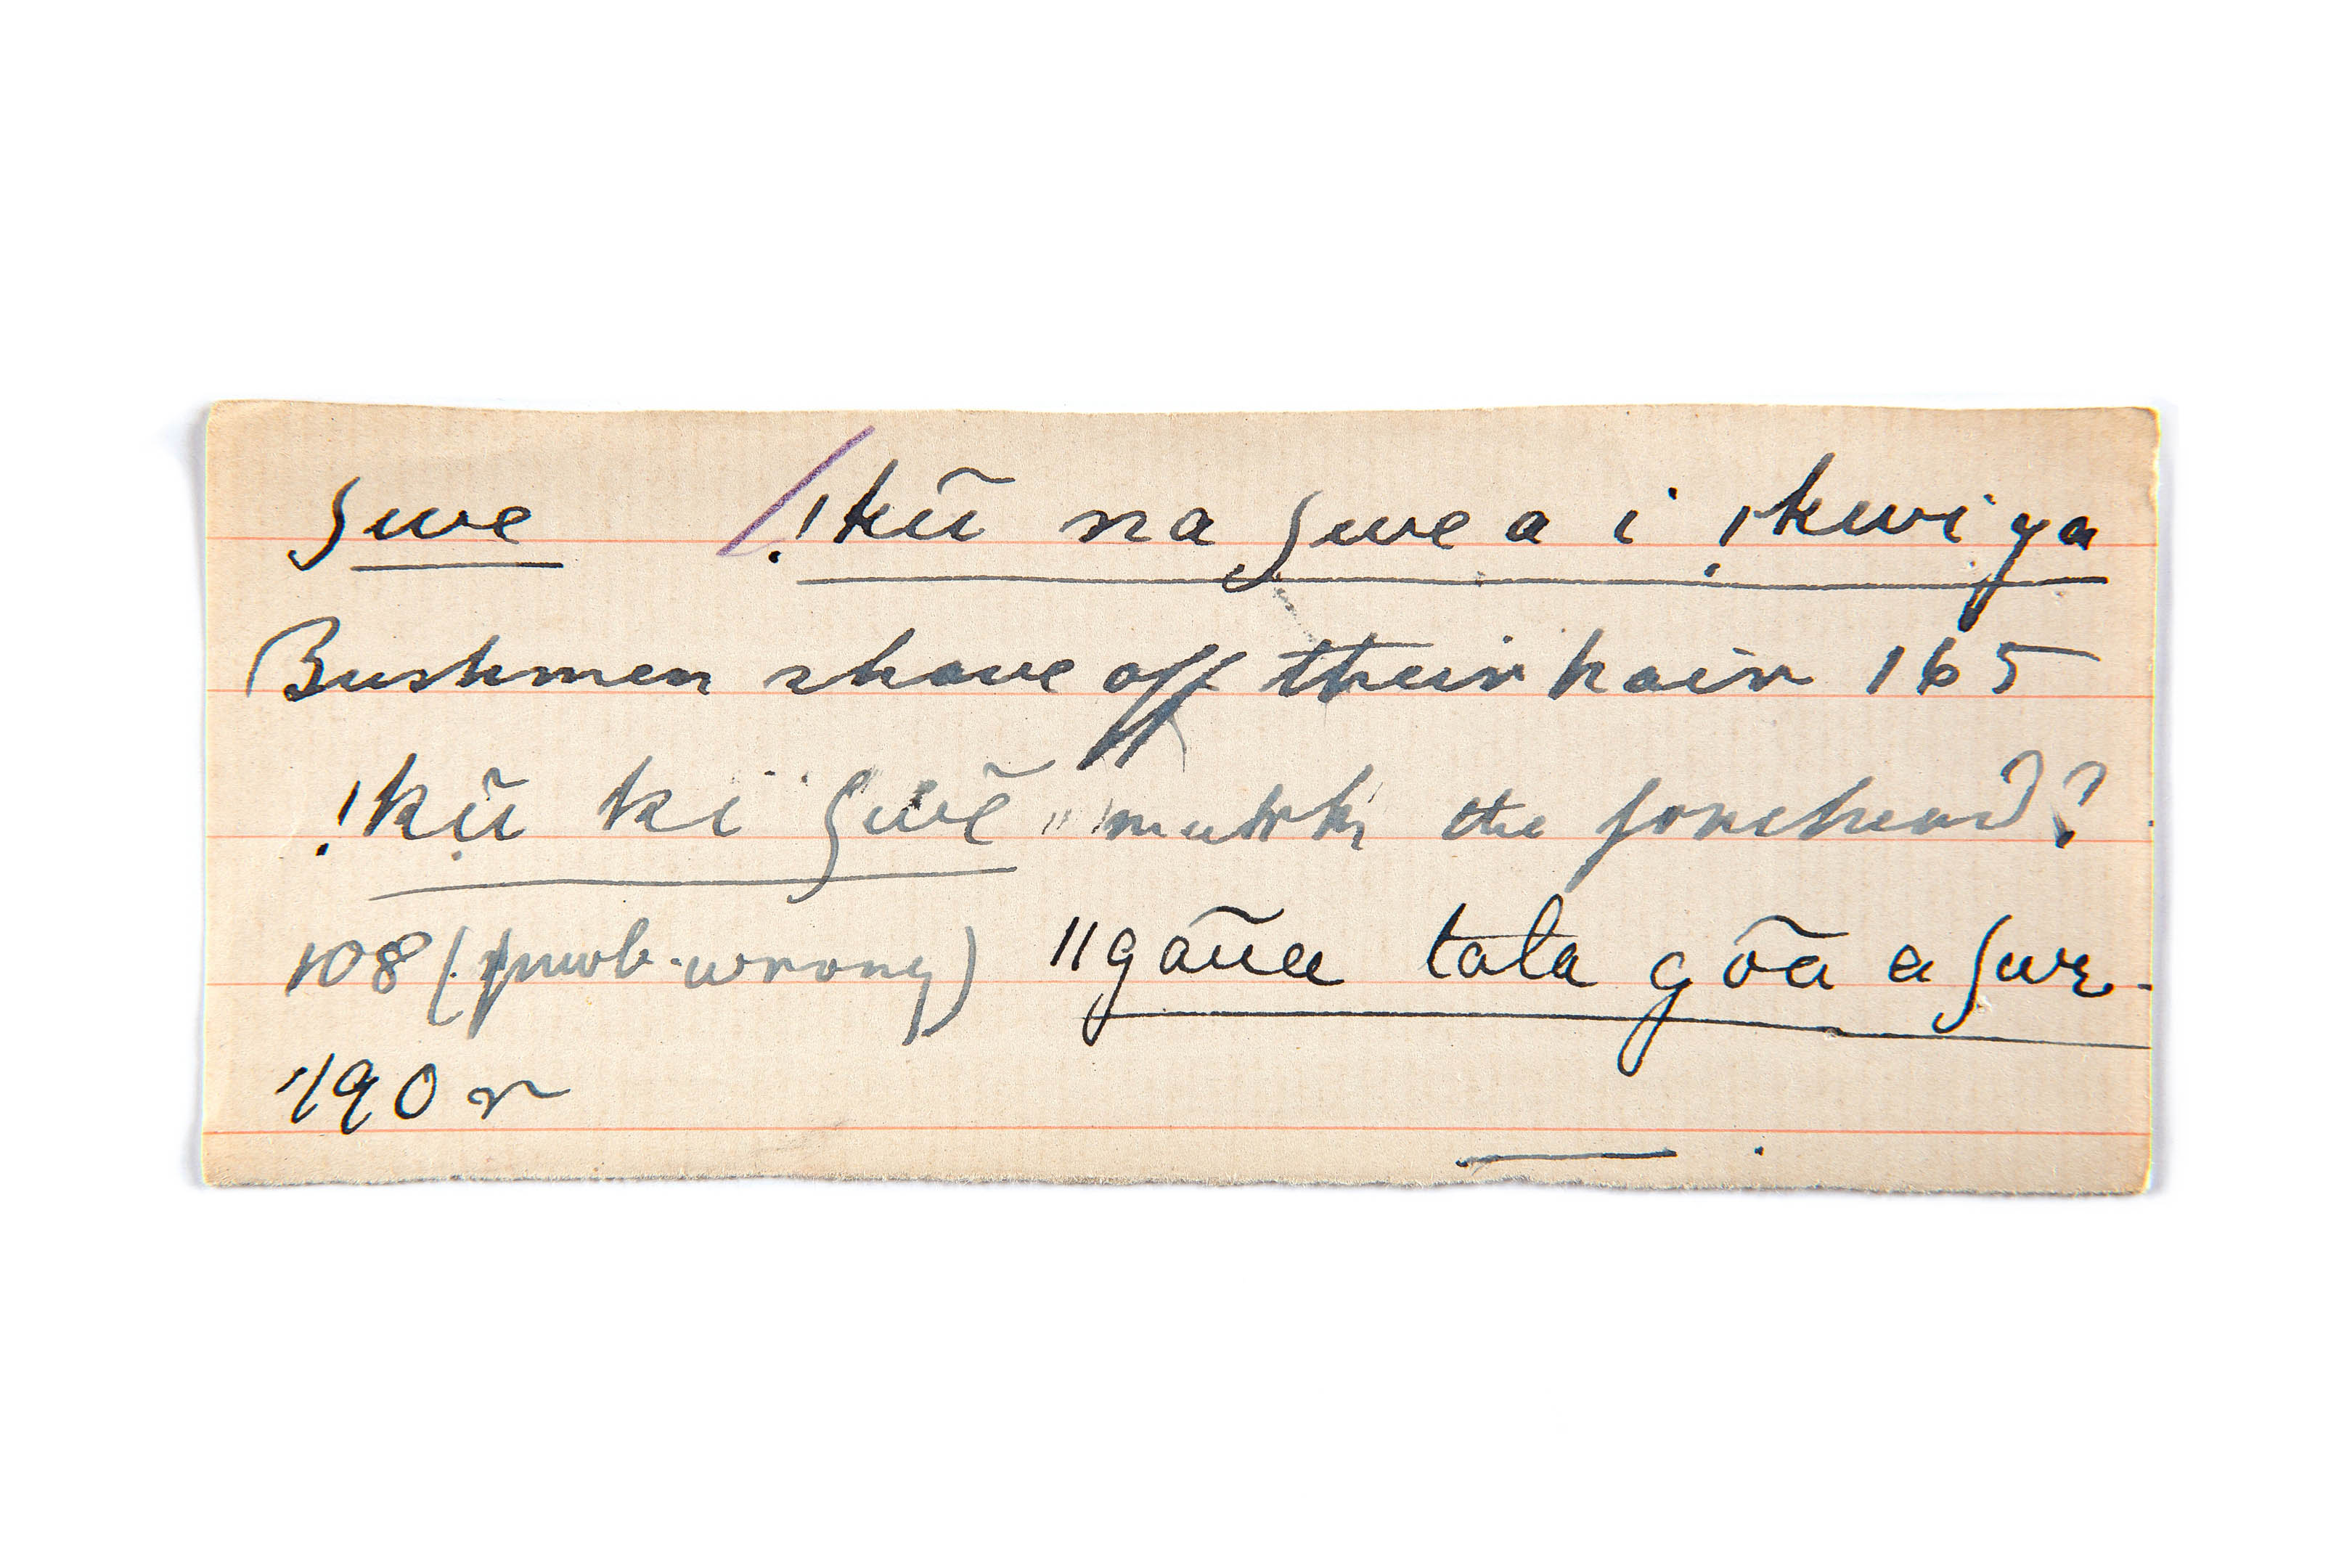 ʃwe !kũ na ʃwe a i !kwi ya
Bushmen shave off their hair 165
!kũ ki ʃwẽ the forehead?
108 (prob. wrong) ǁgãũa tala gõa a ʃwe.
190 r